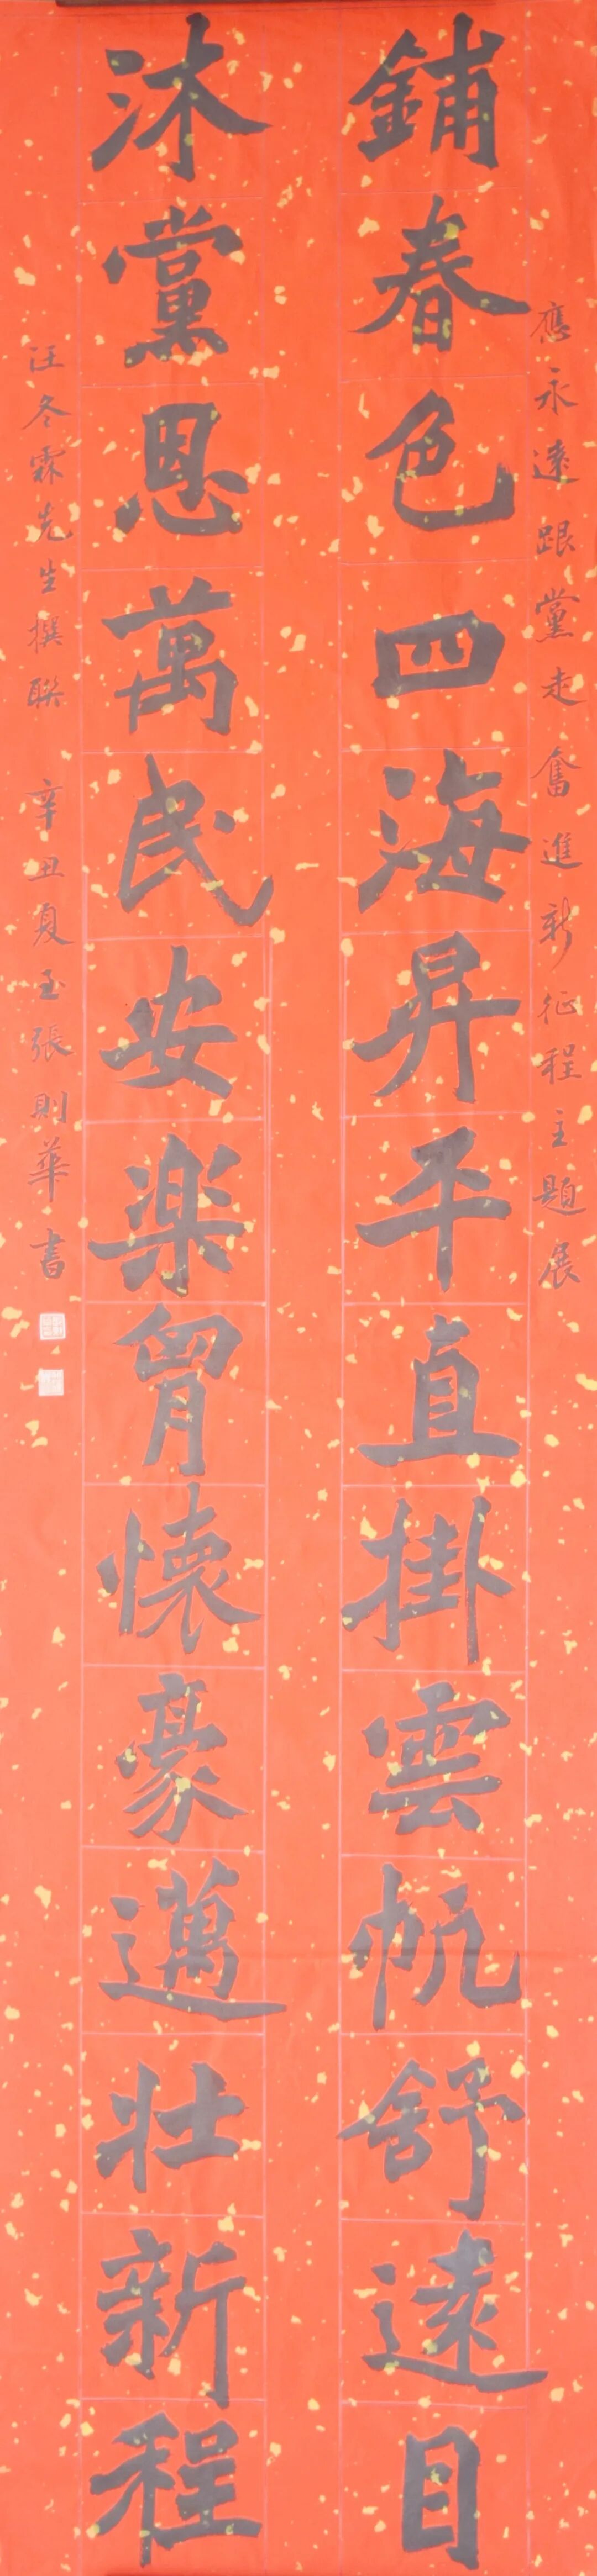 應永遠跟黨走奮進新征程主題展
鋪春色四海昇平直掛雲帆舒遠目
沐黨恩萬民安楽胷懐豪邁壯新程
汪冬霖先生撰聯 辛丑夏至張則華書